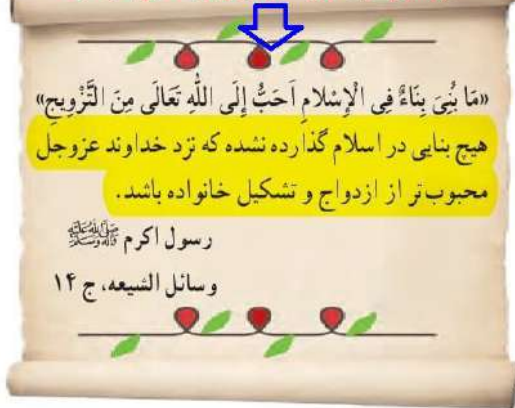 «مَا بُنِیَ بِنَاءٌ فِی الْإِسْلامِ اَحَبُّ إِلَی اللّٰهِ تَعَالَی مِنَ التَّزْوِیجِ»
هیچ بنایی در اسلام گذارده نشده که نزد خداوند عزوجل
محبوب‌تر از ازدواج و تشکیل خانواده باشد.
رسول اکرم
وسائل الشیعه، ج ۱۴